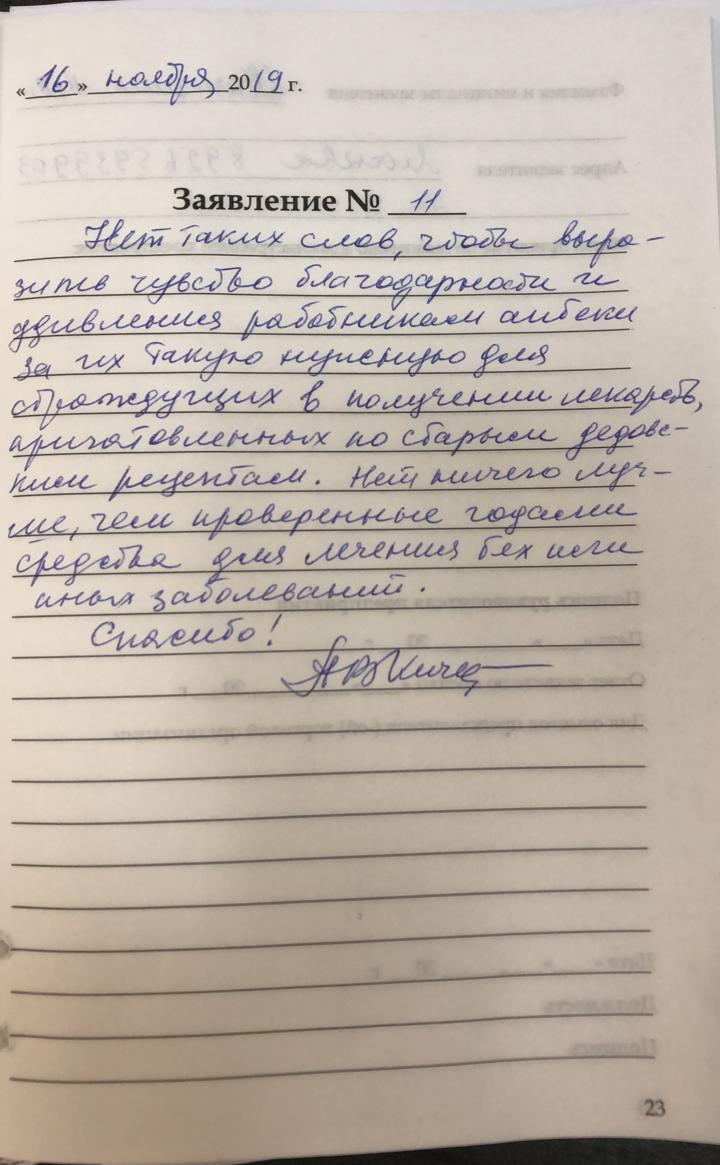 «16» ноября 2019 г.
Заявление № 11
Нет таких слов, чтобы выра-
зить чувство благодарности и
удивления работникам аптеки
за их такую нужную для
страждущих в получении лекарств,
приготовленных по старым дедовс-
ким рецептам. Нет ничего луч-
ше, чем проверенные годами
средства для лечения тех или
иных заболеваний.
Спасибо!
23